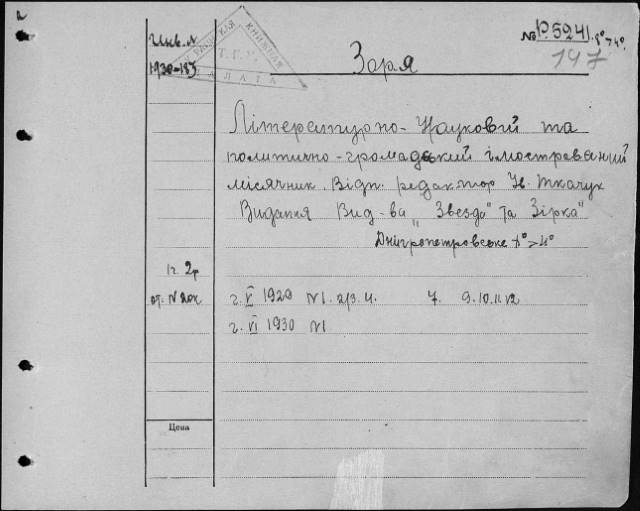 Инв. №
1930-183
КНИЖНАЯ
ПАЛАТА
№ Р5241 8°>4°
197
Зоря
Літературно-Науковий та
политично-громадський ілюстрований
місячник. Відп. редактор Ів. Ткачук
Видання Вид-ва „Звезда" та Зірка"
Дніпропетровське 8°>4°
1г. 2р
г. V 1929 N1. 2/3. 4. 7. 9. 10. 11. 12
г. VI 1930 N1
Цена